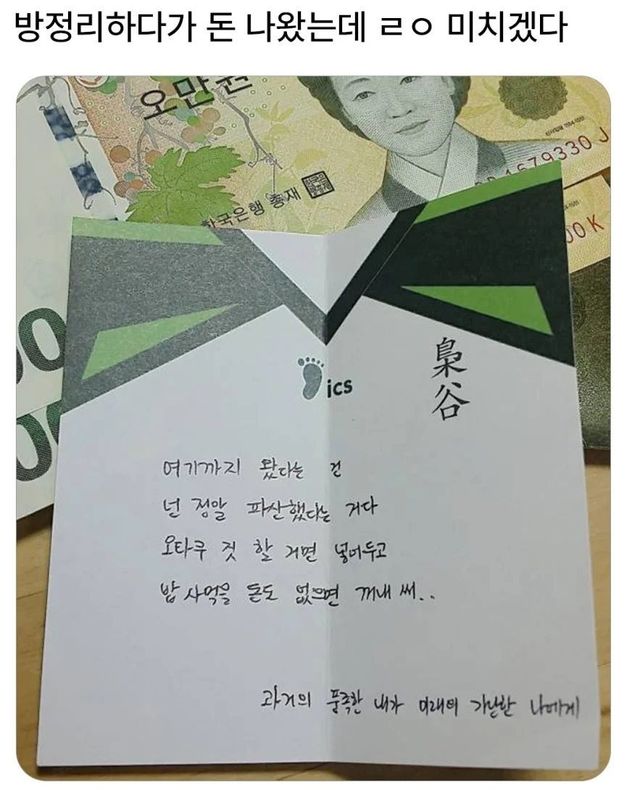 방정리하다가 돈 나왔는데 ㄹㅇ 미치겠다
오만원
한국은행 총재
4679330 J
00 K
00
00
ics
梟谷
여기까지 왔다는 건
넌 정말 파산했다는 거다
오타쿠 짓 할 거면 넣어두고
밥 사먹을 돈도 없으면 꺼내 써..
과거의 풍족한 내가 미래의 가난한 나에게